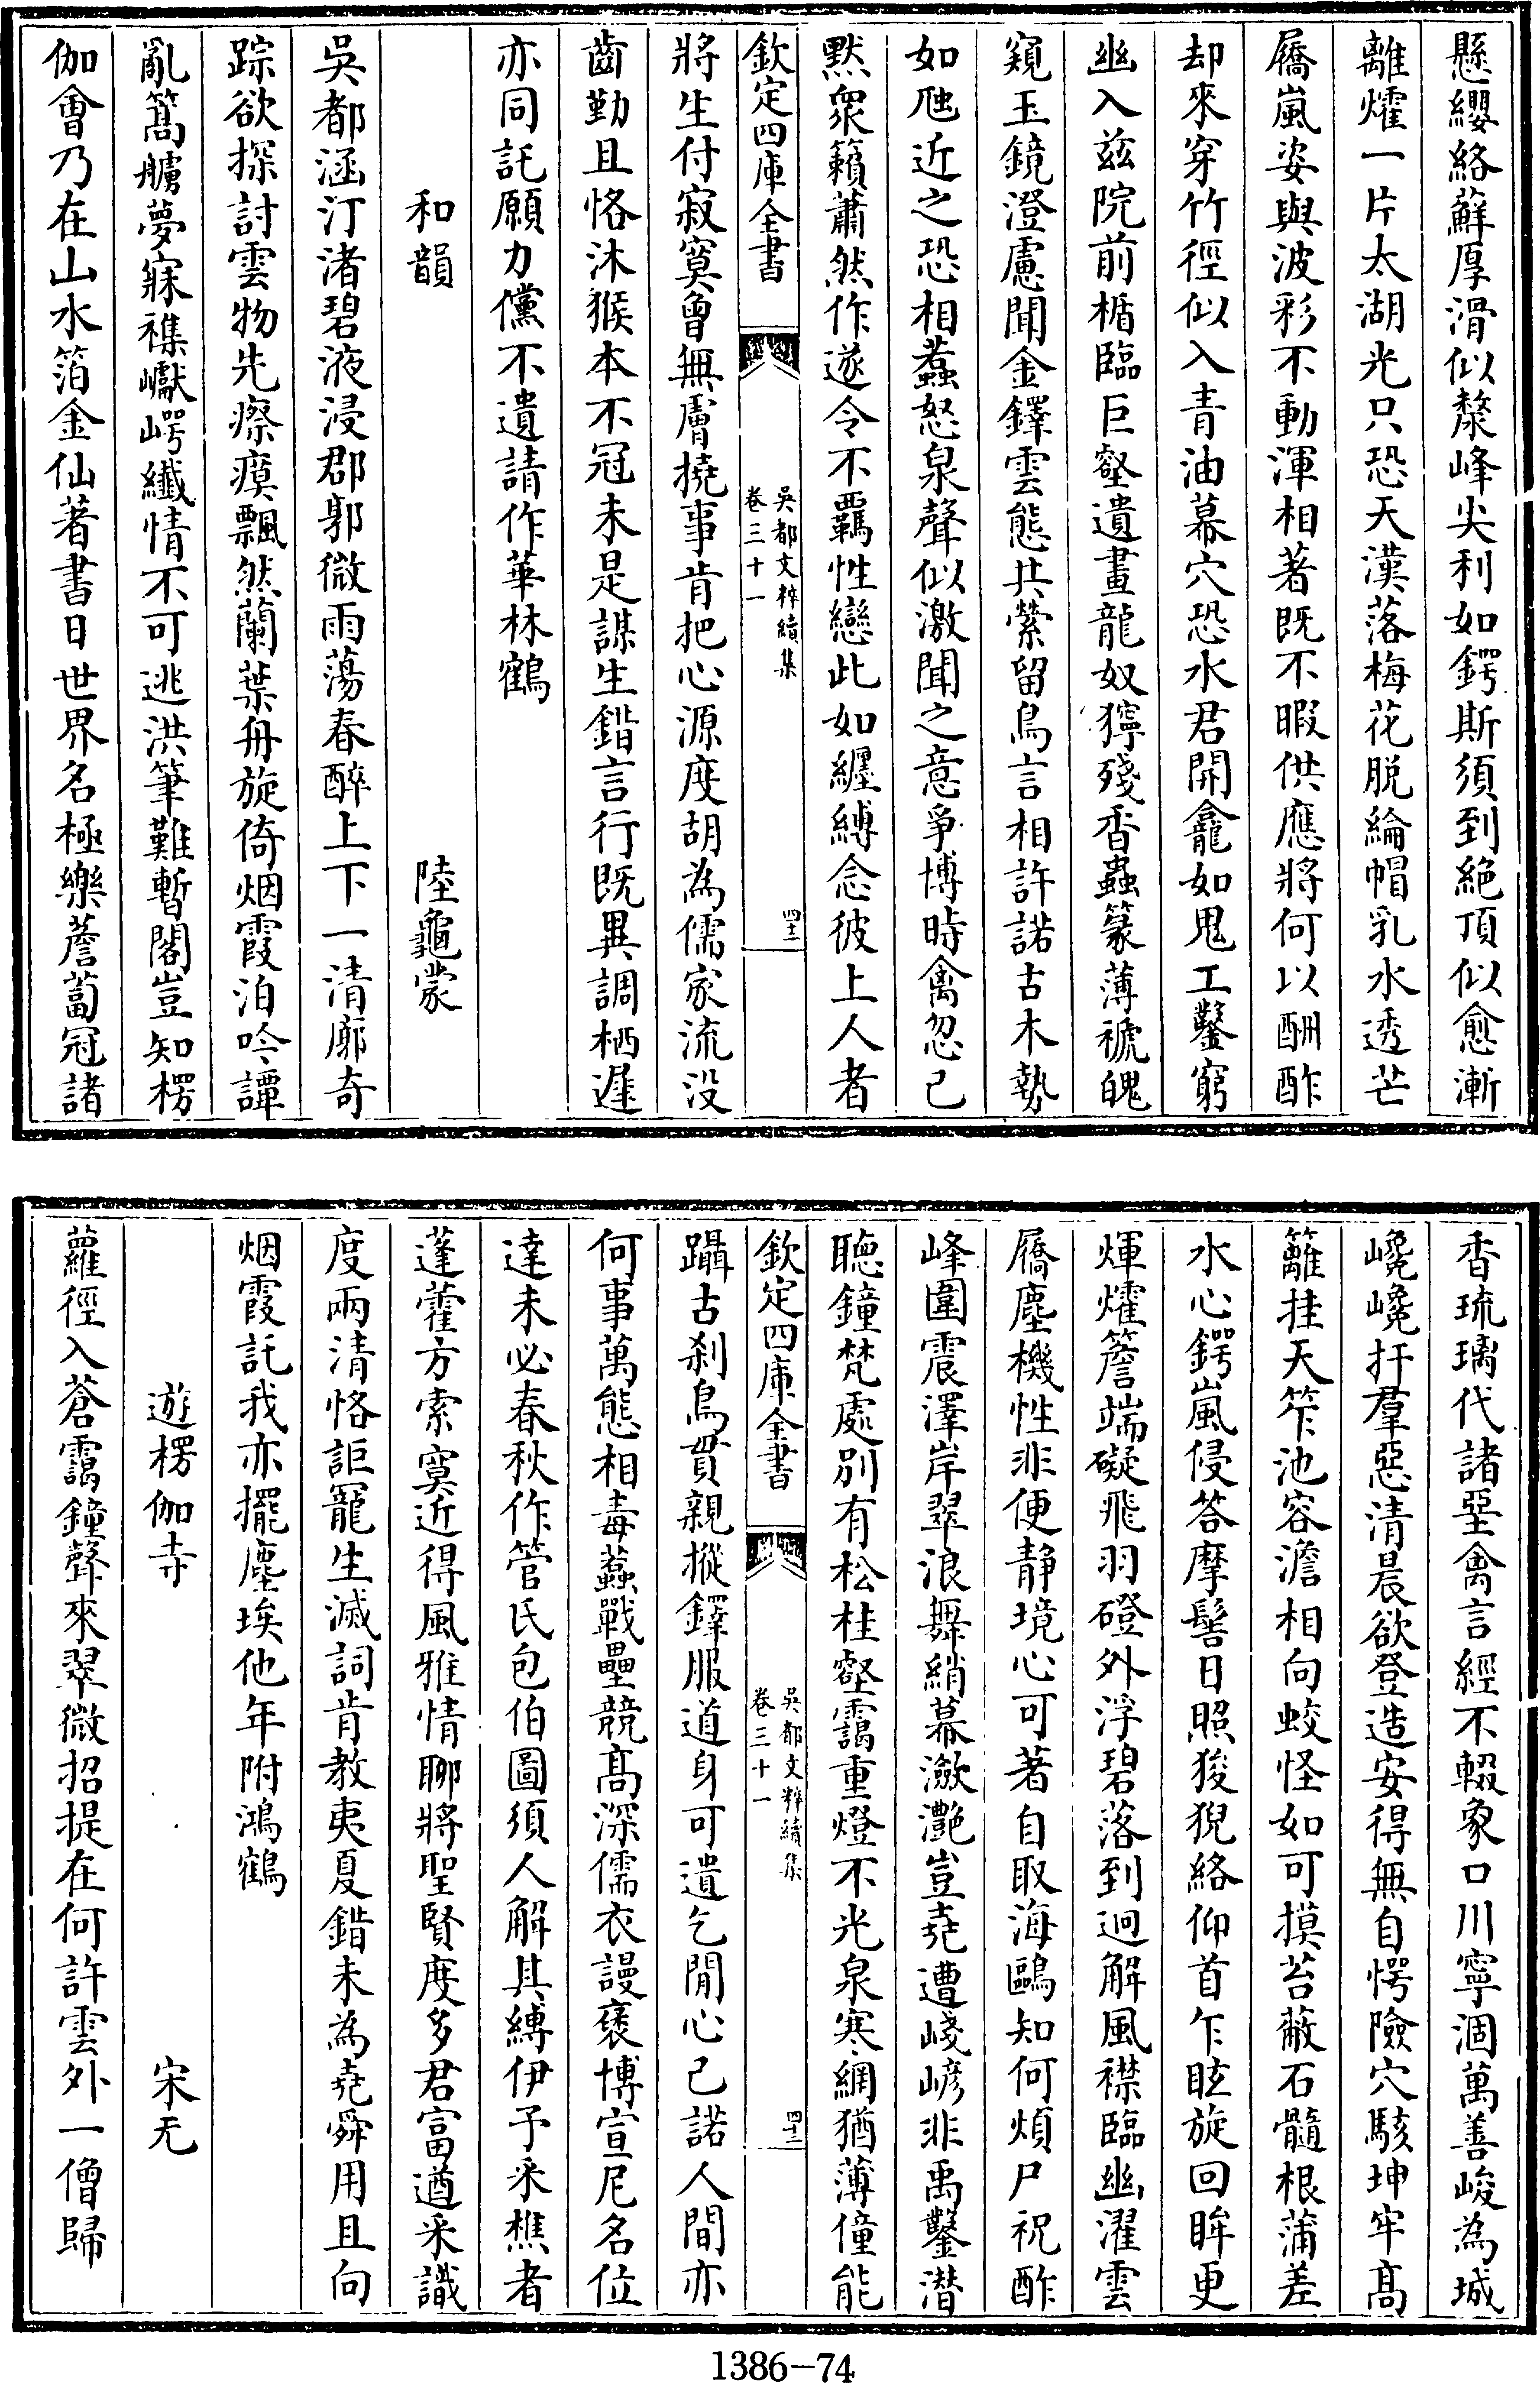 懸纓絡蘚厚滑似漦峰尖利如鍔斯須到絶頂似愈漸
離㸌一片太湖光只恐天漢落梅花脱綸帽乳水透芒
屩嵐姿與波彩不動渾相著既不暇供應將何以酬酢
却來穿竹徑似入青油幕穴恐水君開龕如鬼工鑿窮
幽入兹院前楯臨巨壑遺畫龍奴獰殘香蟲篆薄褫魄
窺玉鏡澄慮聞金鐸雲態共縈留鳥言相許諾古木勢
如虺近之恐相蠚怒泉聲似激聞之意爭博時禽忽已
默衆籟蕭然作遂令不羈性戀此如纒縛念彼上人者
欽定四庫全書
吳都文粹續集
卷三十一
四十二
將生付寂寞曾無膚撓事肯把心源度胡為儒家流没
齒勤且恪沐猴本不冠未是謀生錯言行既異調栖遲
亦同託願力儻不遺請作華林鶴
和韻
陸龜蒙
吳都涵汀渚碧液浸郡郭微雨蕩春醉上下一清廓奇
踪欲探討雲物先瘵瘼飄然蘭葉舟旋倚烟霞泊吟譚
亂篙艣夢寐襍巘崿纖情不可逃洪筆難暫閣豈知楞
伽會乃在山水箔金仙著書日世界名極樂薝蔔冠諸
香琉璃代諸堊禽言經不輟象口川寧涸萬善峻為城
巉巉扞羣惡清晨欲登造安得無自愕險穴駭坤牢高
籬挂天笮池容澹相向蛟怪如可摸苔蔽石髓根蒲差
水心鍔嵐侵荅摩髻日照狻猊絡仰首乍眩旋回眸更
煇㸌簷端礙飛羽磴外浮碧落到迥解風襟臨幽濯雲
屩塵機性非便静境心可著自取海鷗知何煩尸祝酢
峰圍震澤岸翠浪舞綃幕瀲灔豈堯遭崚嵃非禹鑿潜
聽鐘梵處别有松桂壑靄重燈不光泉寒網猶薄僮能
欽定四庫全書
吳都文粹續集
卷三十一
四十三
躡古刹鳥貫親摐鐸服道身可遺乞閒心已諾人間亦
何事萬態相毒蠚戰壘競高深儒衣謾褒博宣尼名位
達未必春秋作管氏包伯圖須人解其縛伊予采樵者
蓬藋方索寞近得風雅情聊將聖賢度多君富遒采識
度兩清恪詎寵生滅詞肯教夷夏錯未為堯舜用且向
烟霞託我亦擺塵埃他年附鴻鶴
遊楞伽寺
宋无
蘿徑入蒼靄鐘聲來翠微招提在何許雲外一僧歸
1386-74